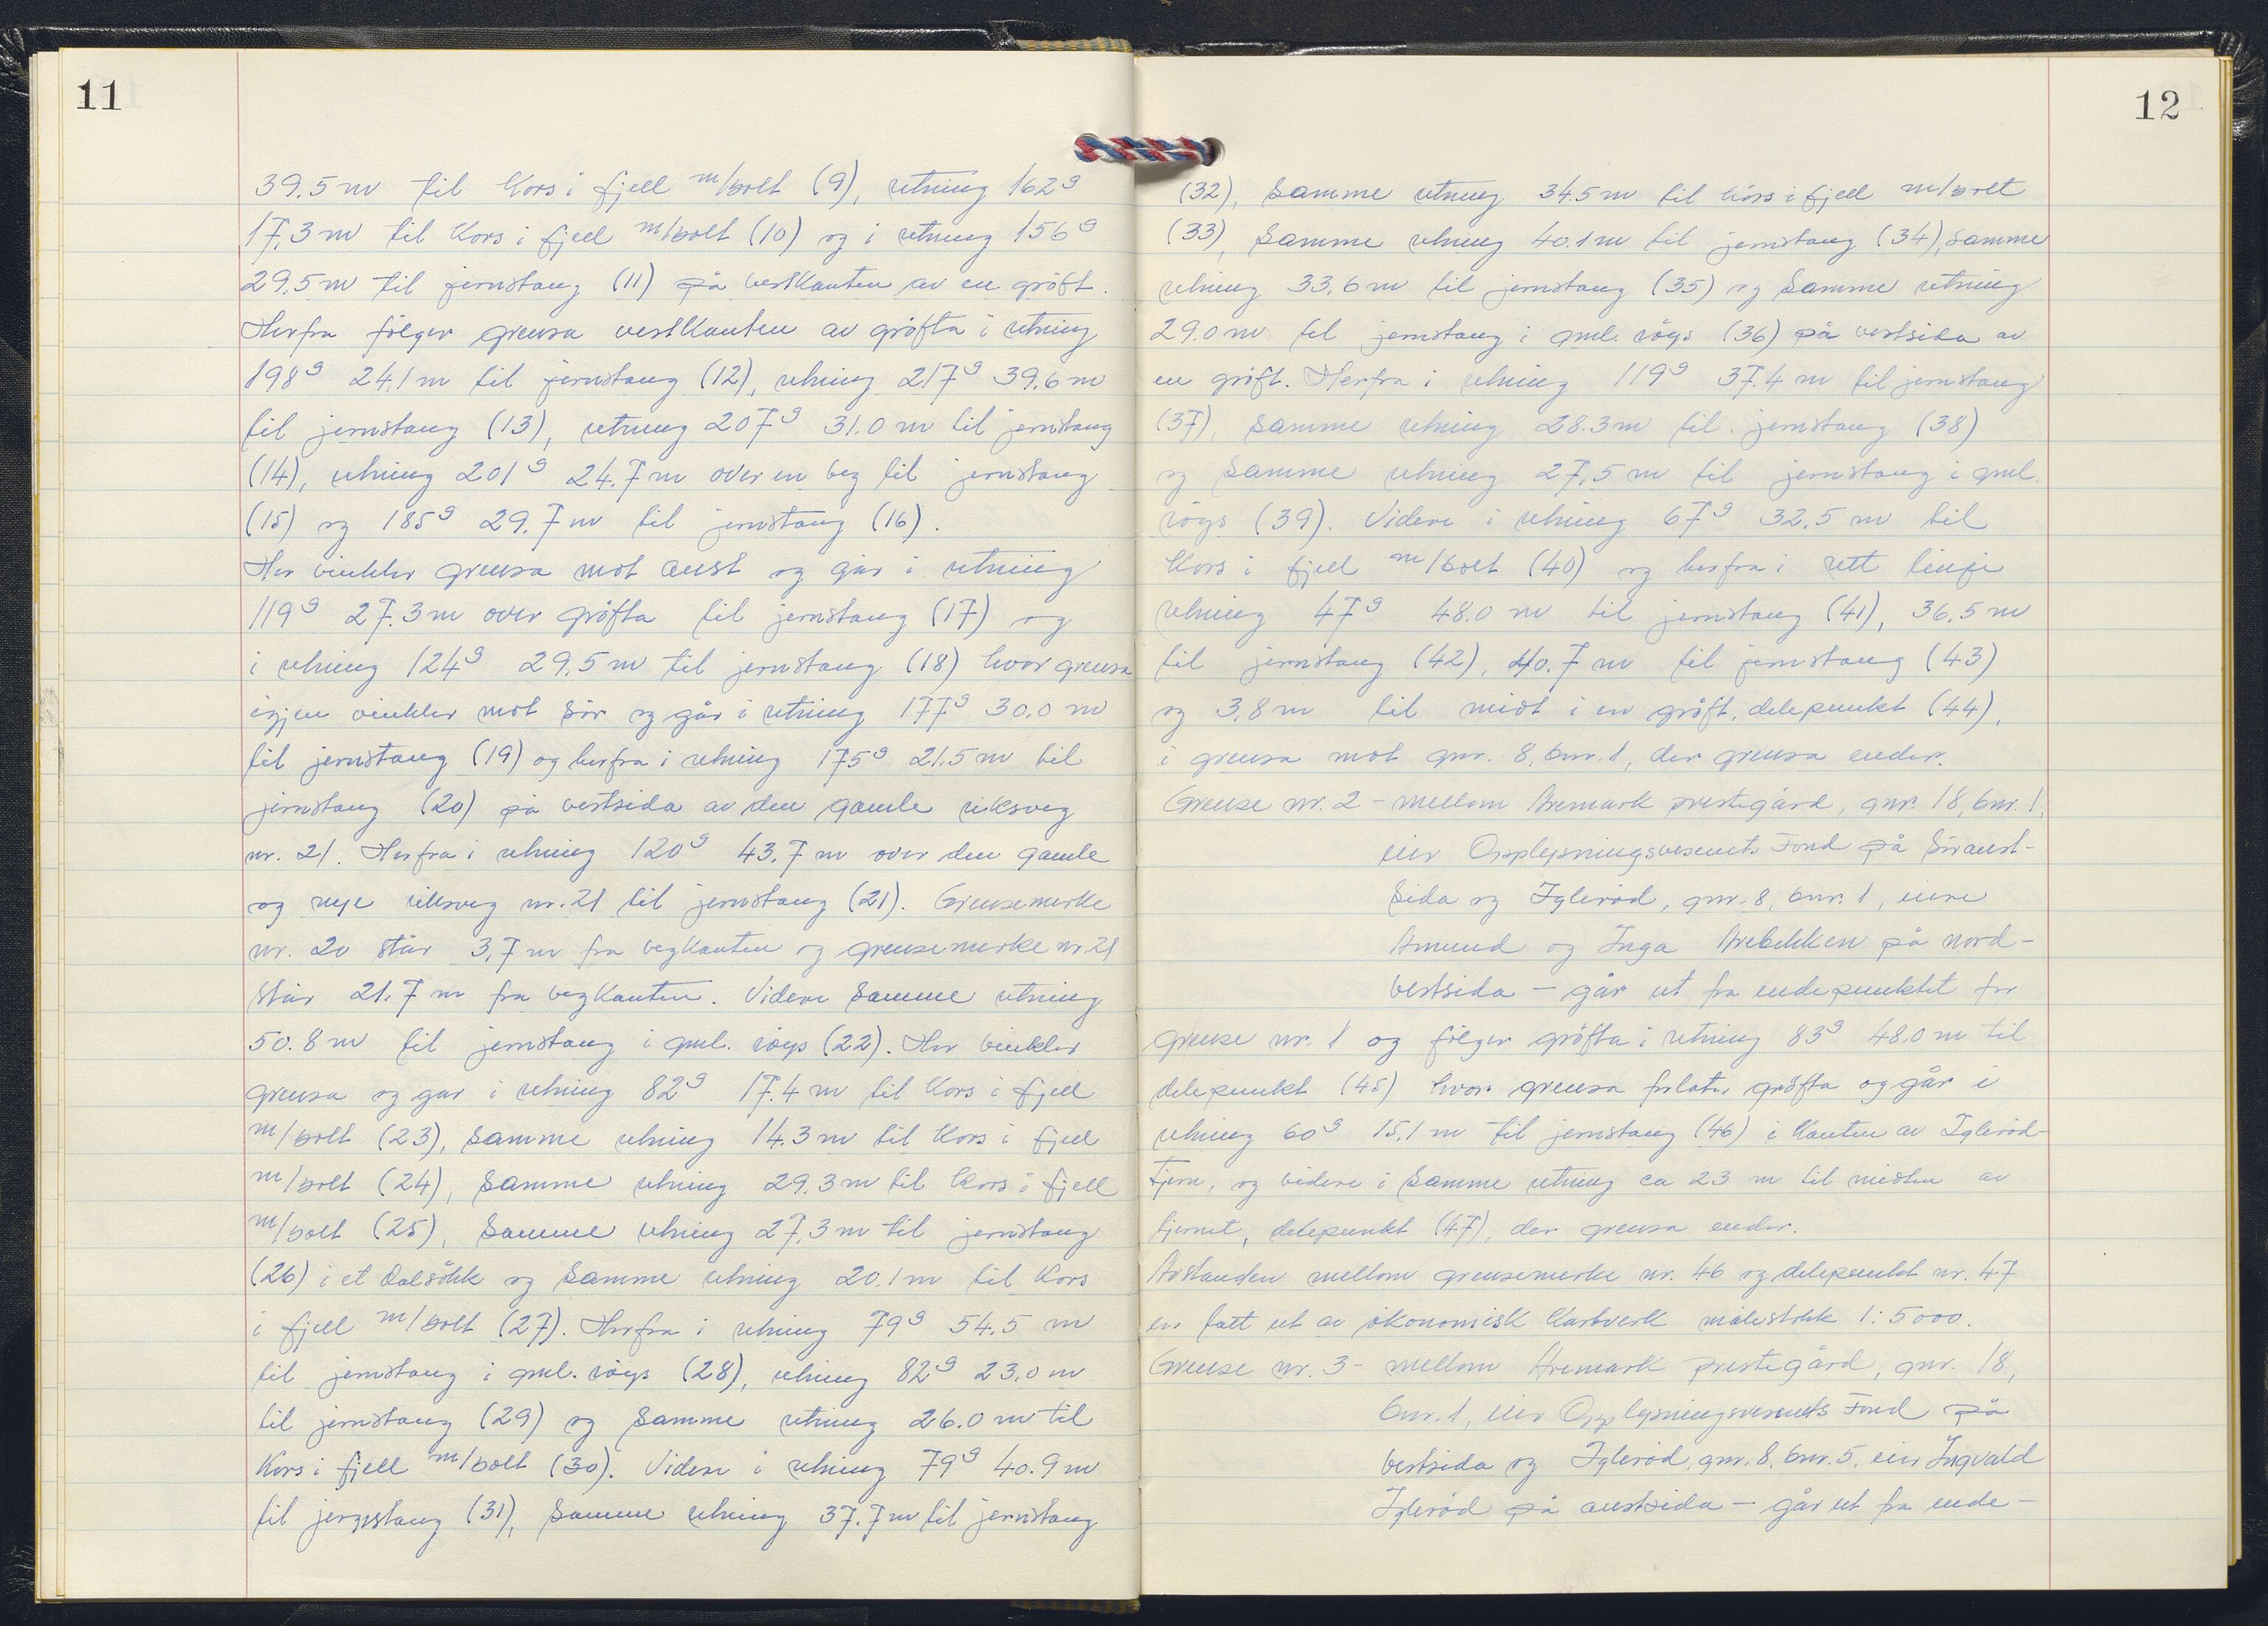 11
39.5 m til kors i fjell m/bolt (9), retning 162g
17.3 m til kors i fjell m/bolt (10) og i retning 156g
29.5 m til jernstang (11) på vestkanten av en grøft.
Herfra følger grensa vestkanten av grøfta i retning
198g 24.1 m til jernstang (12), retning 217g 39.6 m
til jernstang (13), retning 207g 31.0 m til jernstang
(14), retning 201g 24.7 m over en veg til jernstang
(15) og 185g 29.7 m til jernstang (16).
Her vinkler grensa mot aust og går i retning
119g 27.3 m over grøfta til jernstang (17) og
i retning 124g 29.5 m til jernstang (18) hvor grensa
igjen vinkler mot sør og går i retning 177g 30.0 m
til jernstang (19) og herfra i retning 175g 21.5 m til
jernstang (20) på vestsida av den gamle riksveg
nr. 21. Herfra i retning 120g 43.7 m over den gamle
og nye riksveg nr. 21 til jernstang (21). Grensemerke
nr. 20 står 3,7 m fra vegkanten og grensemerke nr. 21
står 21.7 m fra vegkanten. Videre samme retning
50.8 m til jernstang i gml. røys (22). Her vinkler
grensa og går i retning 82g 17.4 m til kors i fjell
m/bolt (23), samme retning 14.3 m til kors i fjell
m/bolt (24), samme retning 29.3 m til kors i fjell
m/bolt (25), samme retning 27,3 m til jernstang
(26) i et dalsøkk og samme retning 20.1 m til kors
i fjell m/bolt (27). Herfra i retning 79g 54.5 m
til jernstang i gml. røys (28), retning 82g 23.0 m
til jernstang (29) og samme retning 26.0 m til
kors i fjell m/bolt (30). Videre i retning 79g 40.9 m
til jernstang (31), samme retning 37.7 m til jernstang
12
(32), samme retning 34.5 m til kors i fjell m/bolt
(33), samme retning 40.1 m til jernstang (34), samme
retning 33,6 m til jernstang (35) og samme retning
29.0 m til jernstang i gml. røys (36) på vestsida av
en grøft. Herfra i retning 119g 37.4 m til jernstang
(37), samme retning 28.3 m til jernstang (38)
og samme retning 27,5 m til jernstang i gml.
røys (39). Videre i retning 67g 32.5 m til
kors i fjell m/bolt (40) og herfra i rett linje
retning 47g 48.0 m til jernstang (41), 36.5 m
til jernstang (42), 40.7 m til jernstang (43)
og 3,8 m til midt i en grøft, delepunkt (44),
i grensa mot gnr. 8, bnr. 1, der grensa ender.
Grense nr. 2 - mellom Aremark prestegård, gnr. 18, bnr. 1,
eier Opplysningsvesenets Fond på søraust-
sida og Iglerød, gnr. 8, bnr. 1, eiere
Amund og Inga Arebekken på nord-
vestsida - går ut fra endepunktet for
grense nr. 1 og følger grøfta i retning 83g 48.0 m til
delepunkt (45) hvor grensa forlater grøfta og går i
retning 60g 15,1 m til jernstang (46) i kanten av Iglerød-
tjern, og videre i samme retning ca 23 m til midten av
tjernet, delepunkt (47), der grensa ender.
Avstanden mellom grensemerke nr. 46 og delepunkt nr. 47
er tatt ut av økonomisk kartverk målestokk 1:5000.
Grense nr. 3 - mellom Aremark prestegård, gnr. 18,
bnr. 1, eier Opplysningsvesenets Fond på
vestsida og Iglerød, gnr. 8, bnr. 5, eier Ingvald
Iglerød på austsida - går ut fra ende-